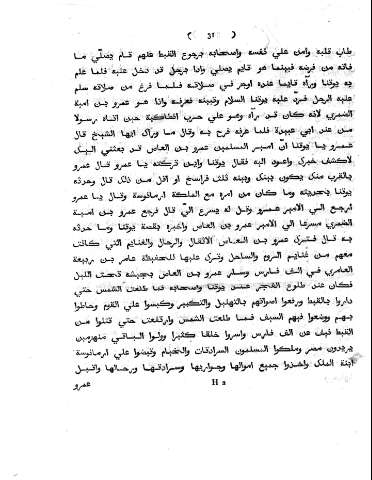 ( ٥١ )
طاب قلبه وامن علي نفسه واصحابه برجوع القبط عنهم قام يصلّي ما
فاته من فرضه فبينما هو قايم يصلي واذا برجل قد دخل عليه فلما علم
به يوقنا ورآه قايما عنده اوجز في صلاته فلما فرغ من صلاته سلم
عليه الرجل فردّ عليه يوقنا السلام وتبينه فعرفه واذا هو عمرو بن امية
الضمري لانه كان قد رآه وهو علي حرب انطاكية حين اتاه رسولا
من عند ابي عبيدة فلما عرفه فرح به وقال ما وراك ايها الشيخ قال
عمرو يا يوقنا انّ امير المسلمين عمرو بن العاص قد بعثني اليك
لاكشف خبرك واعود اليه فقال يوقنا واين تركته يا عمرو قال عمرو
بالقرب منك يكون بينك وبينه ثلث فراسخ او اقل من ذلك قال وحدثه
يوقنا بحديثه وما كان من امره مع الملكة ارمانوسة وقال يا عمرو
ارجع الي الامير عمرو وقل له يسرع الي قال فرجع عمرو بن امية
الضمري مسرعا الي الامير عمرو بن العاص واخبره بقصة يوقنا وما حدثه
به قال فترك عمرو بن العاص الاثقال والرحال والغنايم التي كانت
معهم من غنايم الروم والساحل وترك عليها للحفيظة عامر بن ربيعة
العامري في الف فارس وسار عمرو بن العاص بجيشه تحت الليل
فكان عند طلوع الفجر عند يوقنا واصحابه فما طلعت الشمس حتي
داروا بالقبط ورفعوا اصواتهم بالتهليل والتكبير وكبسوا علي القوم وحاطوا
بهم ووضعوا فيهم السيف فما طلعت الشمس وارتفعت حتي قتلوا من
القبط نيف عن الف فارس واسروا خلقا كثيرا وولوا الباقي منهزمين
يريدون مصر وملكوا المسلمون السرادقات والخيام وقبضوا علي ارمانوسة
ابنة الملك واخذوا جميع اموالها وجواريها وسرادقها ورحالها واقبل
H 2
عمرو